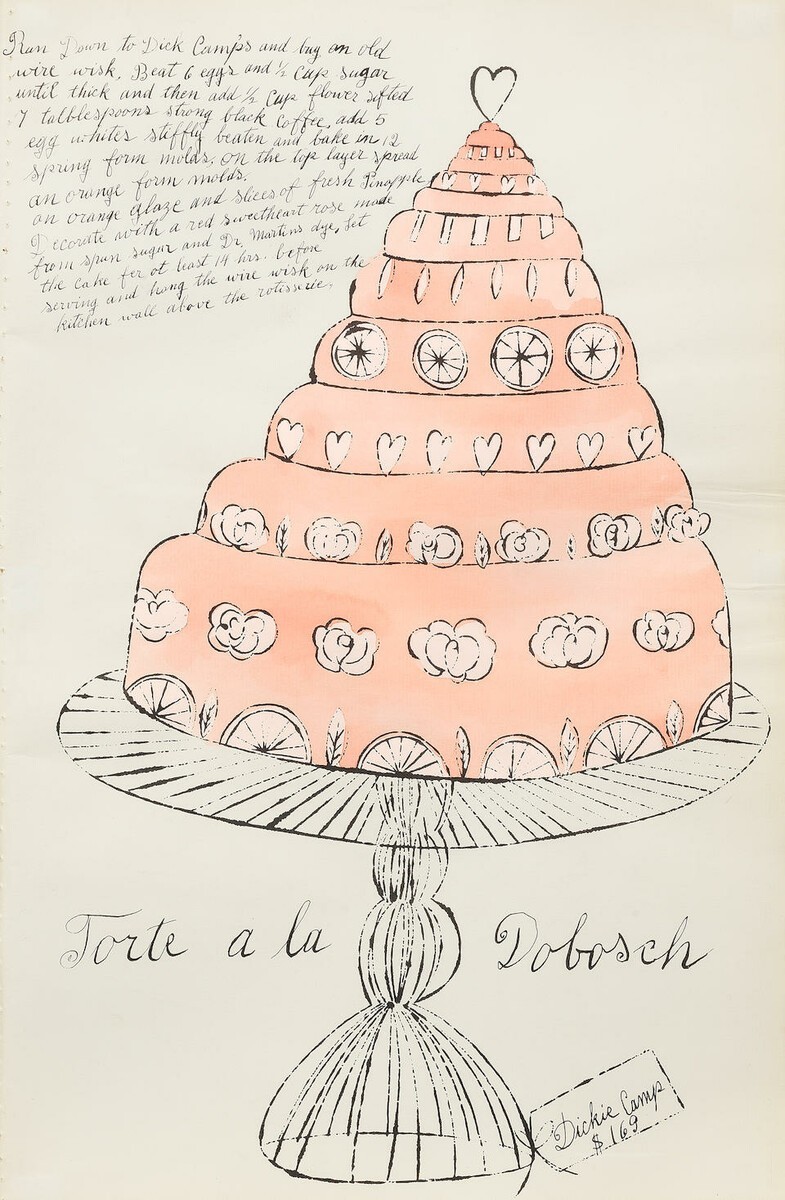 Run Down to Dick Camps and buy an old
wire wisk. Beat 6 eggs and ½ Cup sugar
until thick and then add ½ Cup flower sifted
7 talblespoons strong black Coffee, add 5
egg whites stiffly beaten and bake in 12
spring form molds. on the top layer spread
an orange form molds.
on orange glaze and slices of fresh Pinopple
Decoratte with a red sweetheart rose made
from spun sugar and Dr. Martins dye, Set
the cake fer ot least 14 hrs. before
serving and hang the wire wisk on the
kitchen wall above the rotisserie.
Torte a la Dobosch
Dickie Camp
$ 169